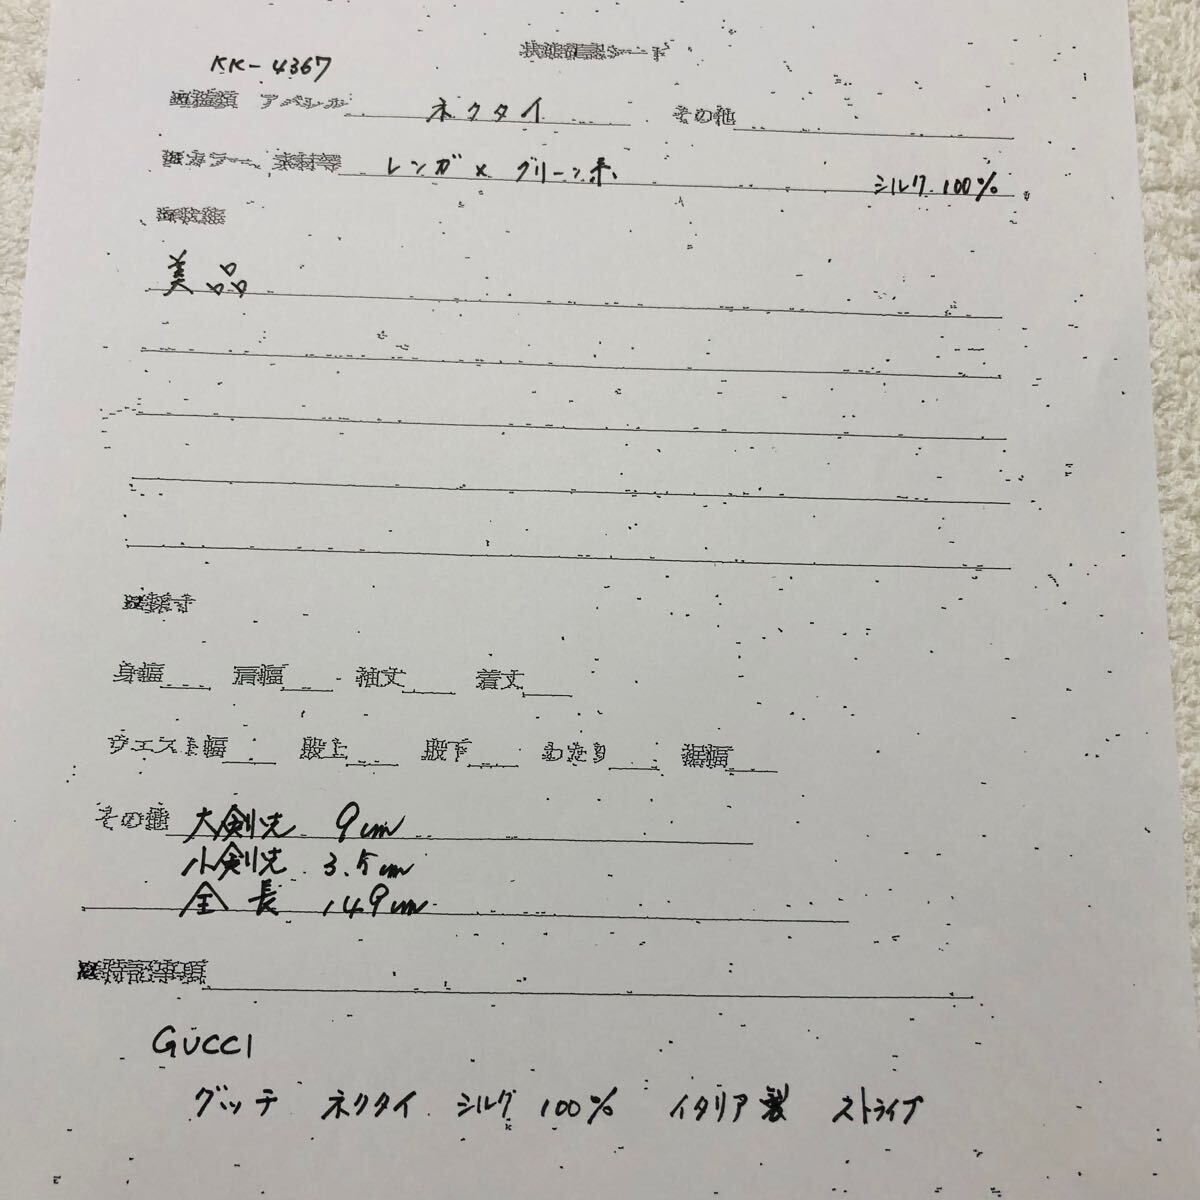 状態確認シート
KK-4367
※種類 アパレル ネクタイ その他
※カラー、素材等 レンガ×グリーン系 シルク100%
※状態
美品
※採寸
身幅 肩幅 袖丈 着丈
ウエスト幅 股上 股下 わたり 裾幅
その他 大剣先 9cm
小剣先 3.5cm
全長 149cm
※特記事項
GUCCI
グッチ ネクタイ シルク 100% イタリア製 ストライプ